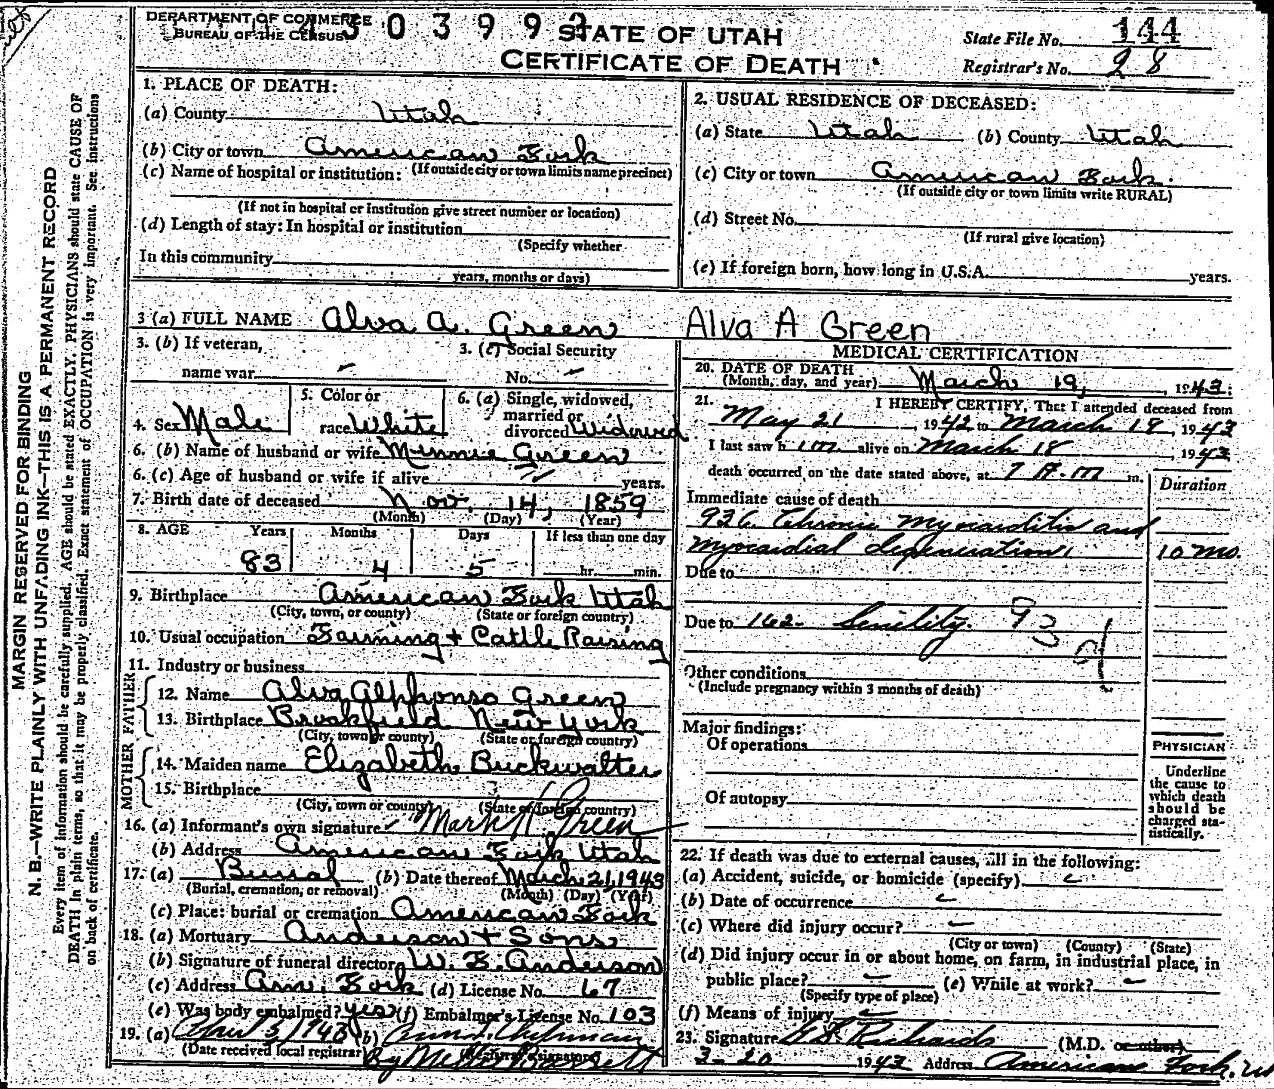 DEPARTMENT OF COMMERCE
BUREAU OF THE CENSUS
3 0 3 9 9
STATE OF UTAH
CERTIFICATE OF DEATH
State File No. 144
Registrar's No. 28
MARGIN RESERVED FOR BINDING
N. B.—WRITE PLAINLY WITH UNFADING INK—THIS IS A PERMANENT RECORD
Every item of information should be carefully supplied. AGE should be stated EXACTLY. PHYSICIANS should state CAUSE OF
DEATH in plain terms, so that it may be properly classified. Exact statement of OCCUPATION is very important. See instructions
on back of certificate.
1. PLACE OF DEATH:
(a) County Utah
(b) City or town American Fork
(If outside city or town limits name precinct)
(c) Name of hospital or institution:
(If not in hospital or institution give street number or location)
(d) Length of stay: In hospital or institution
(Specify whether
In this community
years, months or days)
2. USUAL RESIDENCE OF DECEASED:
(a) State Utah (b) County Utah
(c) City or town American Fork
(If outside city or town limits write RURAL)
(d) Street No.
(If rural give location)
(e) If foreign born, how long in U.S.A. years.
3 (a) FULL NAME Alva A. Green Alva A Green
3. (b) If veteran,
name war
3. (c) Social Security
No.
4. Sex Male
5. Color or
race White
6. (a) Single, widowed,
married or
divorced Widowed
6. (b) Name of husband or wife Minnie Green
6. (c) Age of husband or wife if alive years.
7. Birth date of deceased Nov. 14, 1859
(Month) (Day) (Year)
8. AGE Years Months Days If less than one day
83 4 5 hr. min.
9. Birthplace American Fork Utah
(City, town, or county) (State or foreign country)
10. Usual occupation Farming + Cattle Raising
11. Industry or business
FATHER
12. Name Alva Alphonso Green
13. Birthplace Brookfield New York
(City, town or county) (State or foreign country)
MOTHER
14. Maiden name Elizabeth Buckwalter
15. Birthplace
(City, town or county) (State or foreign country)
16. (a) Informant's own signature Mark H Green
(b) Address American Fork Utah
17. (a) Burial (b) Date thereof March 21, 1943
(Burial, cremation, or removal) (Month) (Day) (Year)
(c) Place: burial or cremation American Fork
18. (a) Mortuary Anderson + Sons
(b) Signature of funeral director W. B. Anderson
(c) Address Ame. Fork (d) License No. 67
(e) Was body embalmed? yes (f) Embalmer's License No. 103
19. (a) April 3, 1943 (b)
(Date received local registrar) (Registrar's signature)
MEDICAL CERTIFICATION
20. DATE OF DEATH
(Month, day, and year) March 19, 1943.
21. I HEREBY CERTIFY, That I attended deceased from
May 21, 1942 to March 18, 1943
I last saw him alive on March 18, 1943
death occurred on the date stated above, at 7 A.m m.
Duration
Immediate cause of death
93C. Chronic Myocarditis and
Myocardial degeneration. 10 mo.
Due to
Due to 162- Senility. 93 d
Other conditions
(Include pregnancy within 3 months of death)
Major findings:
Of operations
Of autopsy
PHYSICIAN
Underline
the cause to
which death
should be
charged sta-
tistically.
22. If death was due to external causes, fill in the following:
(a) Accident, suicide, or homicide (specify)
(b) Date of occurrence
(c) Where did injury occur?
(City or town) (County) (State)
(d) Did injury occur in or about home, on farm, in industrial place, in
public place? (e) While at work?
(Specify type of place)
(f) Means of injury
23. Signature Richards (M.D. or other)
3-20 1943 Address American Fork,